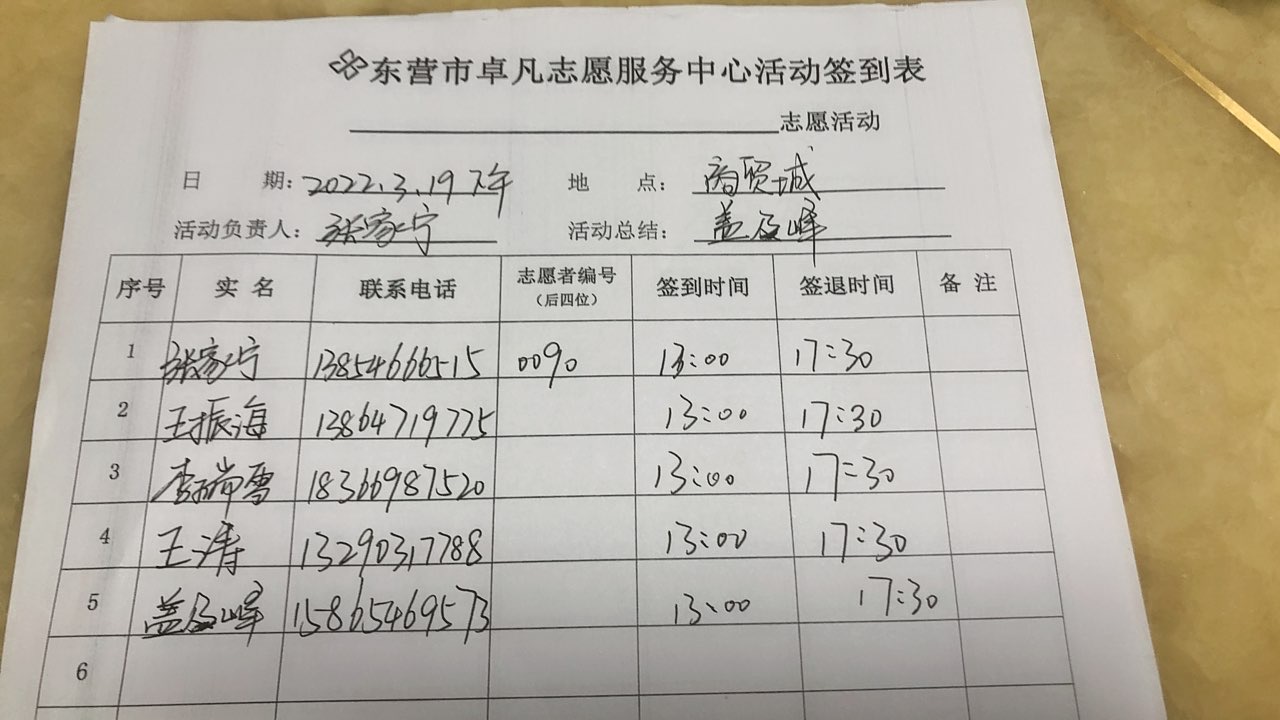 东营市卓凡志愿服务中心活动签到表
志愿活动
日 期：2022.3.19 下午 地 点：商贸城
活动负责人：张家宁 活动总结：盖及峰
序号 实名 联系电话 志愿者编号（后四位） 签到时间 签退时间 备注
1 张家宁 13854666515 0090 13:00 17:30
2 王振海 13864719775 13:00 17:30
3 李瑞雪 18366987520 13:00 17:30
4 王涛 13290317788 13:00 17:30
5 盖及峰 15865469573 13:00 17:30
6